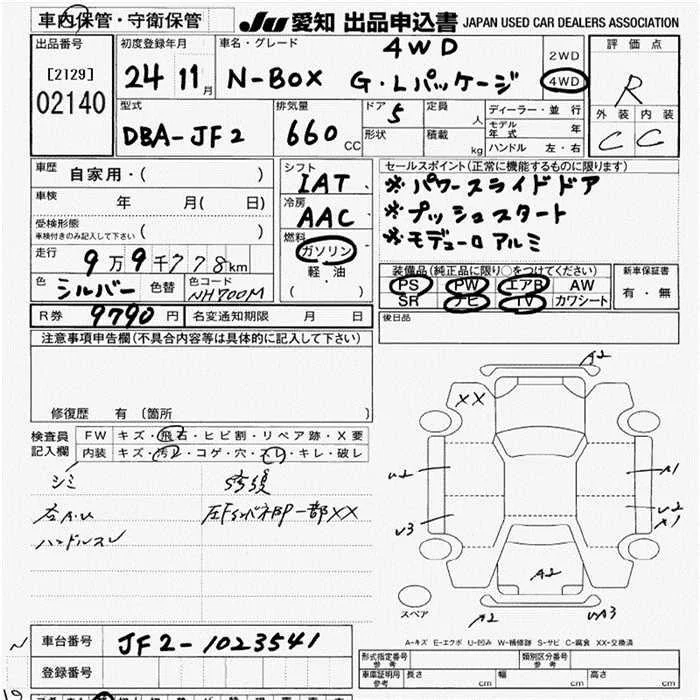 車内保管・守衛保管
JU 愛知 出品申込書 JAPAN USED CAR DEALERS ASSOCIATION
出品番号
[2129]
02140
初度登録年月
24 11月
車名・グレード
4WD
N-BOX G・Lパッケージ
2WD
4WD
評価点
R
外装 内装
C C
型式
DBA-JF2
排気量
660 CC
ドア 5
形状
定員 人
積載 kg
ディーラー・並行
モデル年式 年
ハンドル 左・右
車歴 自家用・( )
車検 年 月( 日)
受検形態
車検付きのみ記入して下さい ( )
走行 9万9千778km
色 シルバー 色替 色コード NH700M
シフト
IAT
冷房
AAC
燃料
ガソリン
軽・油
( )
セールスポイント(正常に機能するものに限ります)
※パワースライドドア
※プッシュスタート
※モデューロアルミ
装備品(純正品に限り○をつけてください)
PS PW エアB AW
SR ナビ TV カワシート
新車保証書
有・無
R券 9790円 名変通知期限 月 日
後日品
注意事項申告欄(不具合内容等は具体的に記入して下さい)
修復歴 有〔箇所 〕
検査員記入欄
FW キズ・飛石・ヒビ割・リペア跡・X要
内装 キズ・汚レ・コゲ・穴・スレ・キレ・破レ
シミ
ハンドルスレ
A2
XX
U2
U3
A1
U2
A1
A2
A2
UA3
スペア
A-キズ E-エクボ U-凹み W-補修跡 S-サビ C-腐食 XX-交換済
車台番号 JF2-1023541
登録番号
形式指定番号 参考
類別区分番号 参考
車庫証明用 参考 長さ cm 幅 cm 高さ cm